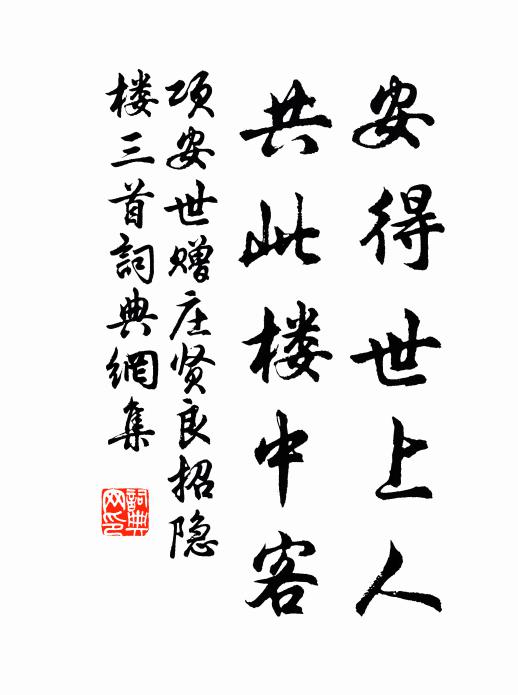 安得世上人
共此楼中客
项安世赠庄贤良招隐
楼三首詞典網集
詞典網印